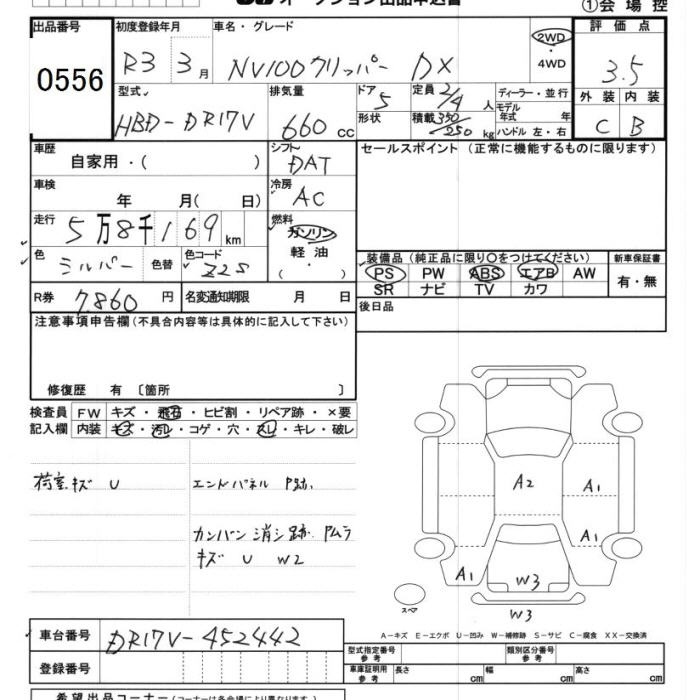 オークション出品申込書 ①会場控
出品番号 初度登録年月 車名・グレード 評価点
0556 R3 3月 NV100クリッパー DX 2WD・4WD 3.5
型式 排気量 ドア 定員 ディーラー・並行 外装 内装
HBD-DR17V 660cc 5 2/4人 モデル年式 年 C B
形状 積載 350/250kg ハンドル 左・右
車歴 シフト セールスポイント(正常に機能するものに限ります)
自家用・( ) DAT
車検 冷房
年 月( 日) AC
走行 5万8千169km 燃料
ガソリン
軽油
・( )
色 シルバー 色替 色コード Z2S
装備品(純正品に限り○をつけてください) 新車保証書
PS PW ABS エアB AW 有・無
SR ナビ TV カワ
R券 7,860円 名変通知期限 月 日 後日品
注意事項申告欄(不具合内容等は具体的に記入して下さい)
修復歴 有〔箇所 〕
検査員 FW キズ・飛石・ヒビ割・リペア跡・×要
記入欄 内装 キズ・汚レ・コゲ・穴・スレ・キレ・破レ
荷室キズ U エンドパネル P跡.
カンバン消シ跡 Pムラ
キズ U W2
A2 A1
A1
A1 W3
スペア W3
A-キズ E-エクボ U-凹み W-補修跡 S-サビ C-腐食 XX-交換済
車台番号 DR17V-452442
型式指定番号 参考 類別区分番号 参考
登録番号 車庫証明用 参考 長さ cm 幅 cm 高さ cm
希望出品コーナー(コーナーは各会場により異なります。)